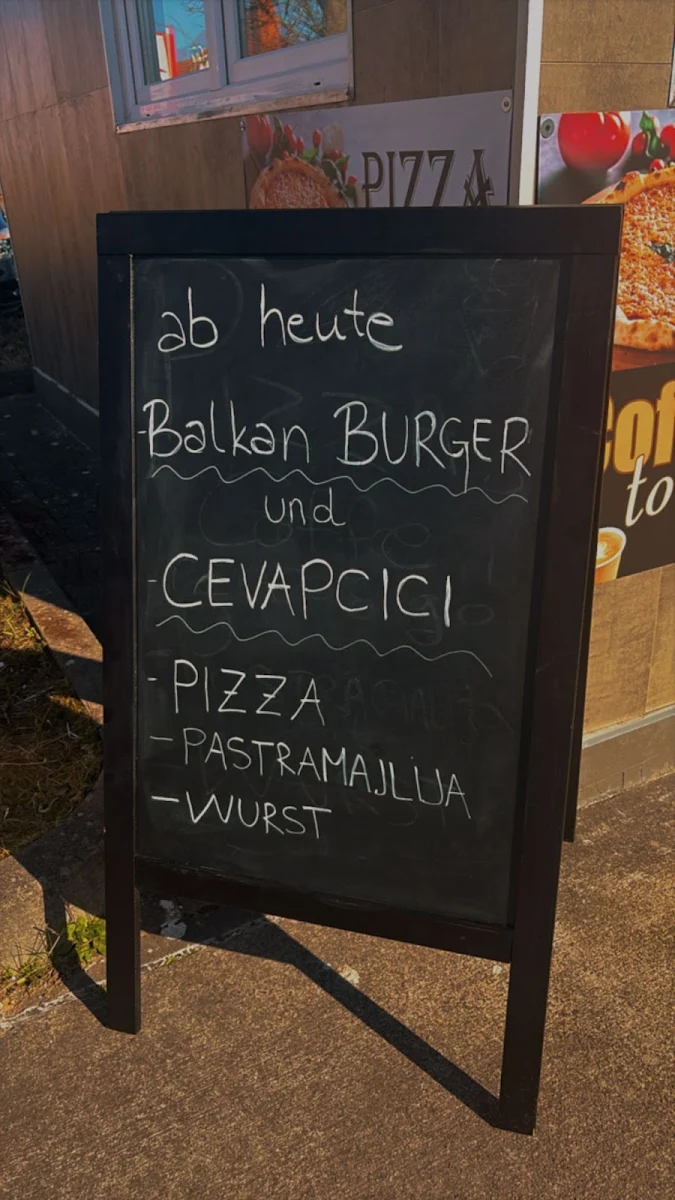 PIZZA
ab heute
-Balkan BURGER
und
-CEVAPCICI
-PIZZA
-PASTRAMAJLIJA
-WURST
to